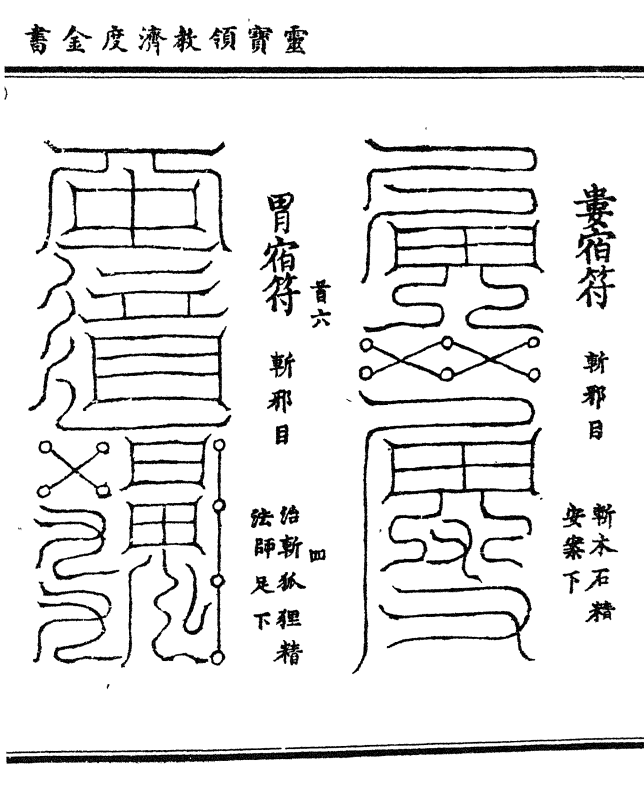 靈寶領教濟度金書
婁宿符 斬邪目
斬木石精
安案下
首六 四
胃宿符 斬邪目
治斬狐狸精
法師足下